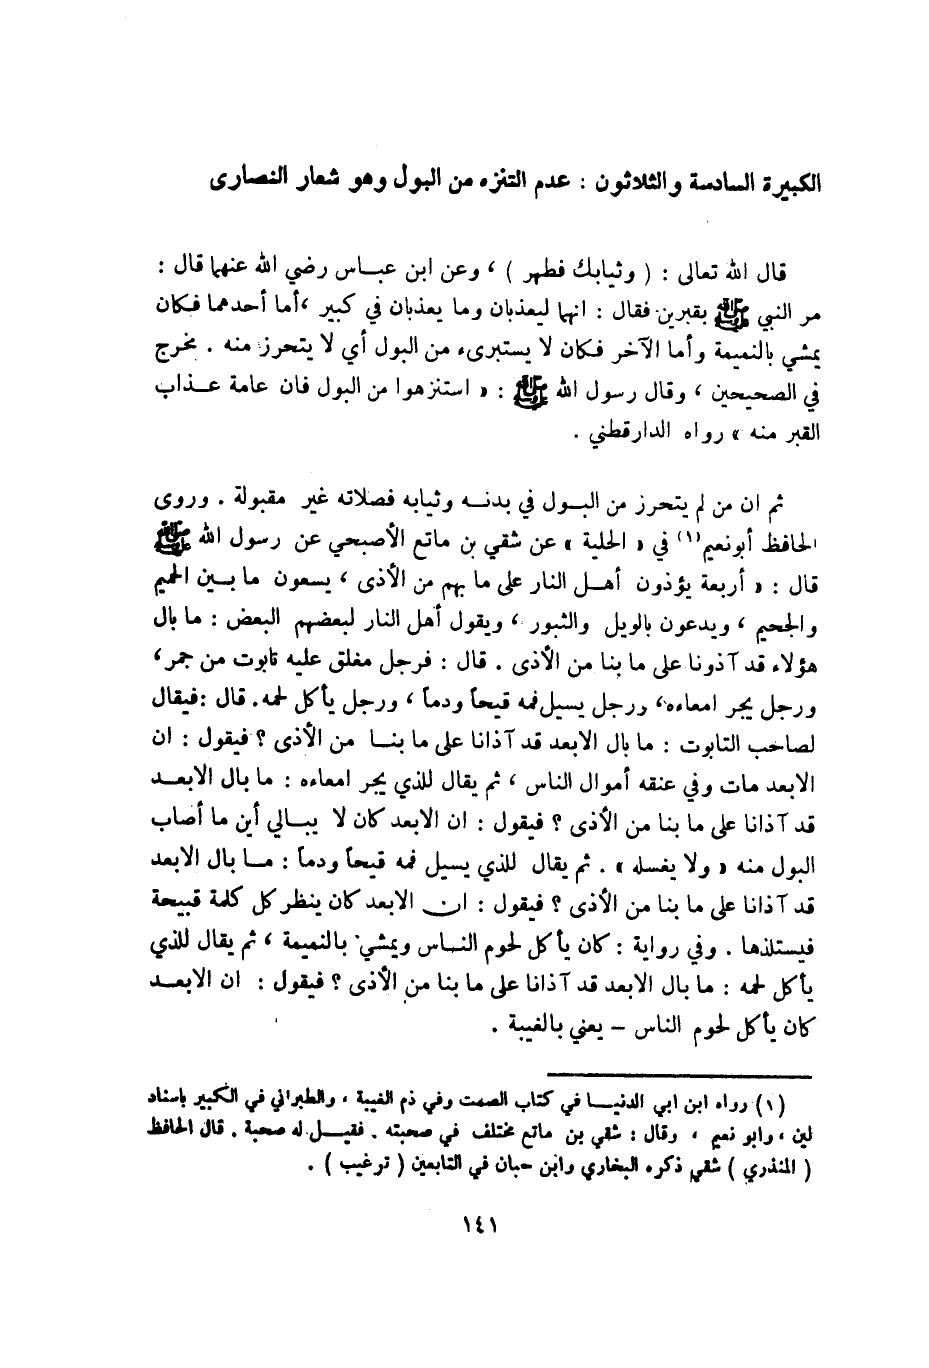 الكبيرة السادسة والثلاثون : عدم التنزه من البول وهو شعار النصارى
قال الله تعالى : ( وثيابك فطهر ) ، وعن ابن عباس رضي الله عنهما قال :
مر النبي ﷺ بقبرين فقال : انهما ليعذبان وما يعذبان في كبير ، أما أحدهما فكان
يمشي بالنميمة وأما الآخر فكان لا يستبرىء من البول أي لا يتحرز منه . مخرج
في الصحيحين ، وقال رسول الله ﷺ : « استنزهوا من البول فان عامة عذاب
القبر منه » رواه الدارقطني .
ثم ان من لم يتحرز من البول في بدنه وثيابه فصلاته غير مقبولة . وروى
الحافظ أبو نعيم (١) في « الحلية » عن شقي بن ماتع الأصبحي عن رسول الله ﷺ
قال : « أربعة يؤذون أهل النار على ما بهم من الأذى ، يسعون ما بين الحميم
والجحيم ، ويدعون بالويل والثبور ، ويقول أهل النار لبعضهم البعض : ما بال
هؤلاء قد آذونا على ما بنا من الأذى . قال : فرجل مغلق عليه تابوت من جمر ،
ورجل يجر امعاءه ، ورجل يسيل فمه قيحاً ودماً ، ورجل يأكل لحمه . قال : فيقال
لصاحب التابوت : ما بال الابعد قد آذانا على ما بنا من الأذى ؟ فيقول : ان
الابعد مات وفي عنقه أموال الناس ، ثم يقال للذي يجر امعاءه : ما بال الابعد
قد آذانا على ما بنا من الأذى ؟ فيقول : ان الابعد كان لا يبالي أين ما أصاب
البول منه « ولا يغسله » . ثم يقال للذي يسيل فمه قيحاً ودماً : ما بال الابعد
قد آذانا على ما بنا من الأذى ؟ فيقول : ان الابعد كان ينظر كل كلمة قبيحة
فيستلذها . وفي رواية : كان يأكل لحوم الناس ويمشي بالنميمة ، ثم يقال للذي
يأكل لحمه : ما بال الابعد قد آذانا على ما بنا من الأذى ؟ فيقول : ان الابعد
كان يأكل لحوم الناس – يعني بالغيبة .
(١) رواه ابن ابي الدنيا في كتاب الصمت وفي ذم الغيبة ، والطبراني في الكبير باسناد
لين ، وابو نعيم ، وقال : شقي بن ماتع مختلف في صحبته . فقيل له صحبة . قال الحافظ
( المنذري ) شقي ذكره البخاري وابن حبان في التابعين ( ترغيب ) .
١٤١